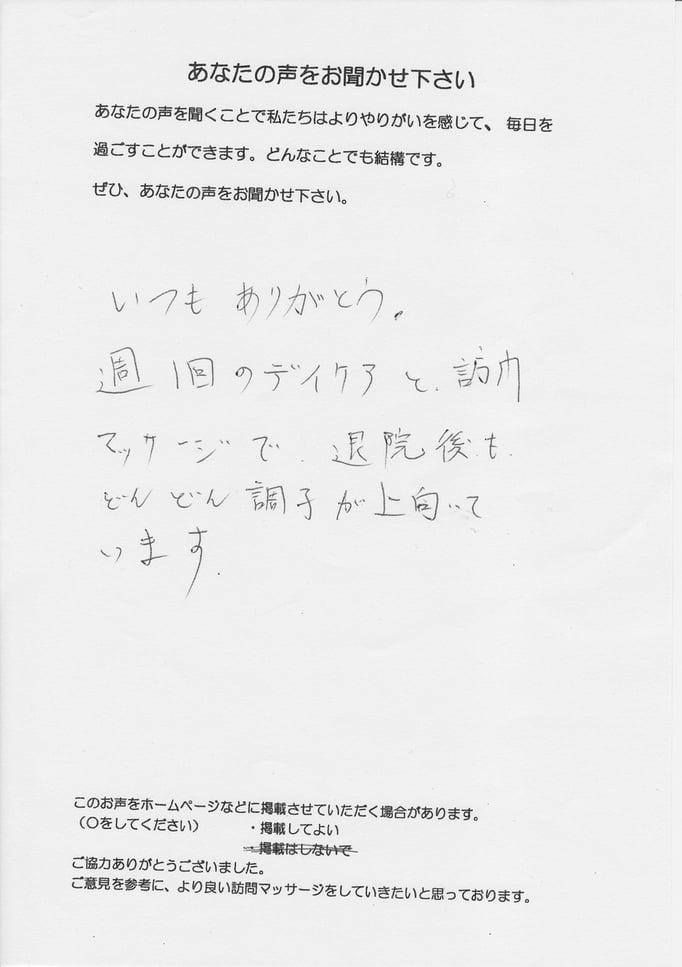 あなたの声をお聞かせ下さい
あなたの声を聞くことで私たちはよりやりがいを感じて、毎日を
過ごすことができます。どんなことでも結構です。
ぜひ、あなたの声をお聞かせ下さい。
いつも ありがとう。
週1回のデイケアと、訪問
マッサージで、退院後も、
どんどん調子が上向いて
います。
このお声をホームページなどに掲載させていただく場合があります。
（〇をしてください）　・掲載してよい
・掲載はしないで
ご協力ありがとうございました。
ご意見を参考に、より良い訪問マッサージをしていきたいと思っております。